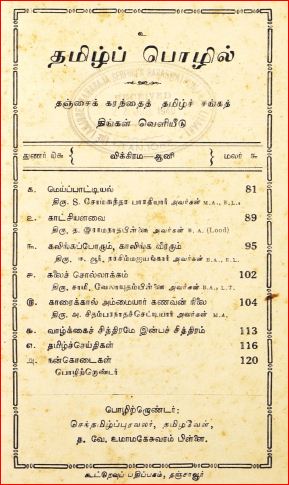 உ
தமிழ்ப் பொழில்
தஞ்சைக் கரந்தைத் தமிழ்ச் சங்கத்
திங்கள் வெளியீடு
துணர் ௧௬ விக்கிரம–ஆனி மலர் ௩
௧. மெய்ப்பாட்டியல் 81
திரு. S. சோமசுந்தர பாரதியார் அவர்கள் M.A., B.L.
௨. காட்சியளவை 89
திரு. த. இராமநாதபிள்ளை அவர்கள் B. A. (Lond)
௩. கலிங்கப்போரும், காலிங்க வீரரும் 95
திரு. ஈ. லூர். நரசிம்மஐயங்கார் அவர்கள் B.A., B.L.
௪. கலைச் சொல்லாக்கம் 102
திரு. சாமி, வேலாயுதம்பிள்ளை அவர்கள் B.A., L.T.
௫. காரைக்கால் அம்மையார் கணவன் நிலை 104
திரு. அ. சிதம்பரநாதச்செட்டியார் அவர்கள் M.A.
௬. வாழ்க்கைச் சித்திரமே இன்பச் சித்திரம் 113
௭. தமிழ்ச்செய்திகள் 116
௮. நன்கொடைகள் 120
பொழிற்றொண்டர்
பொழிற்றொண்டர்:
செந்தமிழ்ப்புரவலர், தமிழவேள்,
த. வே. உமாமகேசுவரம் பிள்ளை.
கூட்டுறவுப் பதிப்பகம், தஞ்சாவூர்